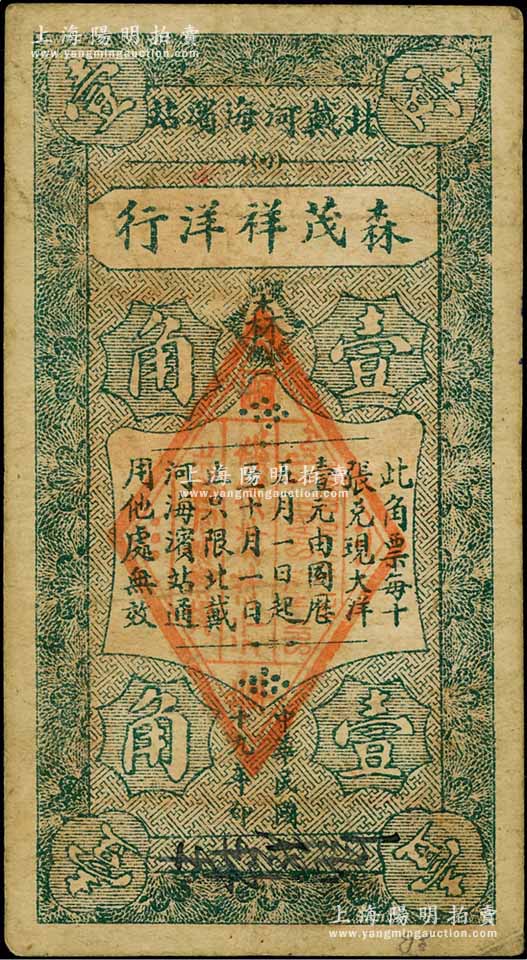 上海陽明拍卖
www.yangmingauction.com
壹
壹
北戴河海濱站
森茂祥洋行
森
壹角
此角票每十
張兑現大洋
壹元由國歷
五月一日起
十月一日
止只限北戴
河海濱站通
用他處無效
上海陽明拍卖
www.yangmingauction.com
壹角
中華民國
十九年印
上海陽明拍賣
www.yangmingauction.com